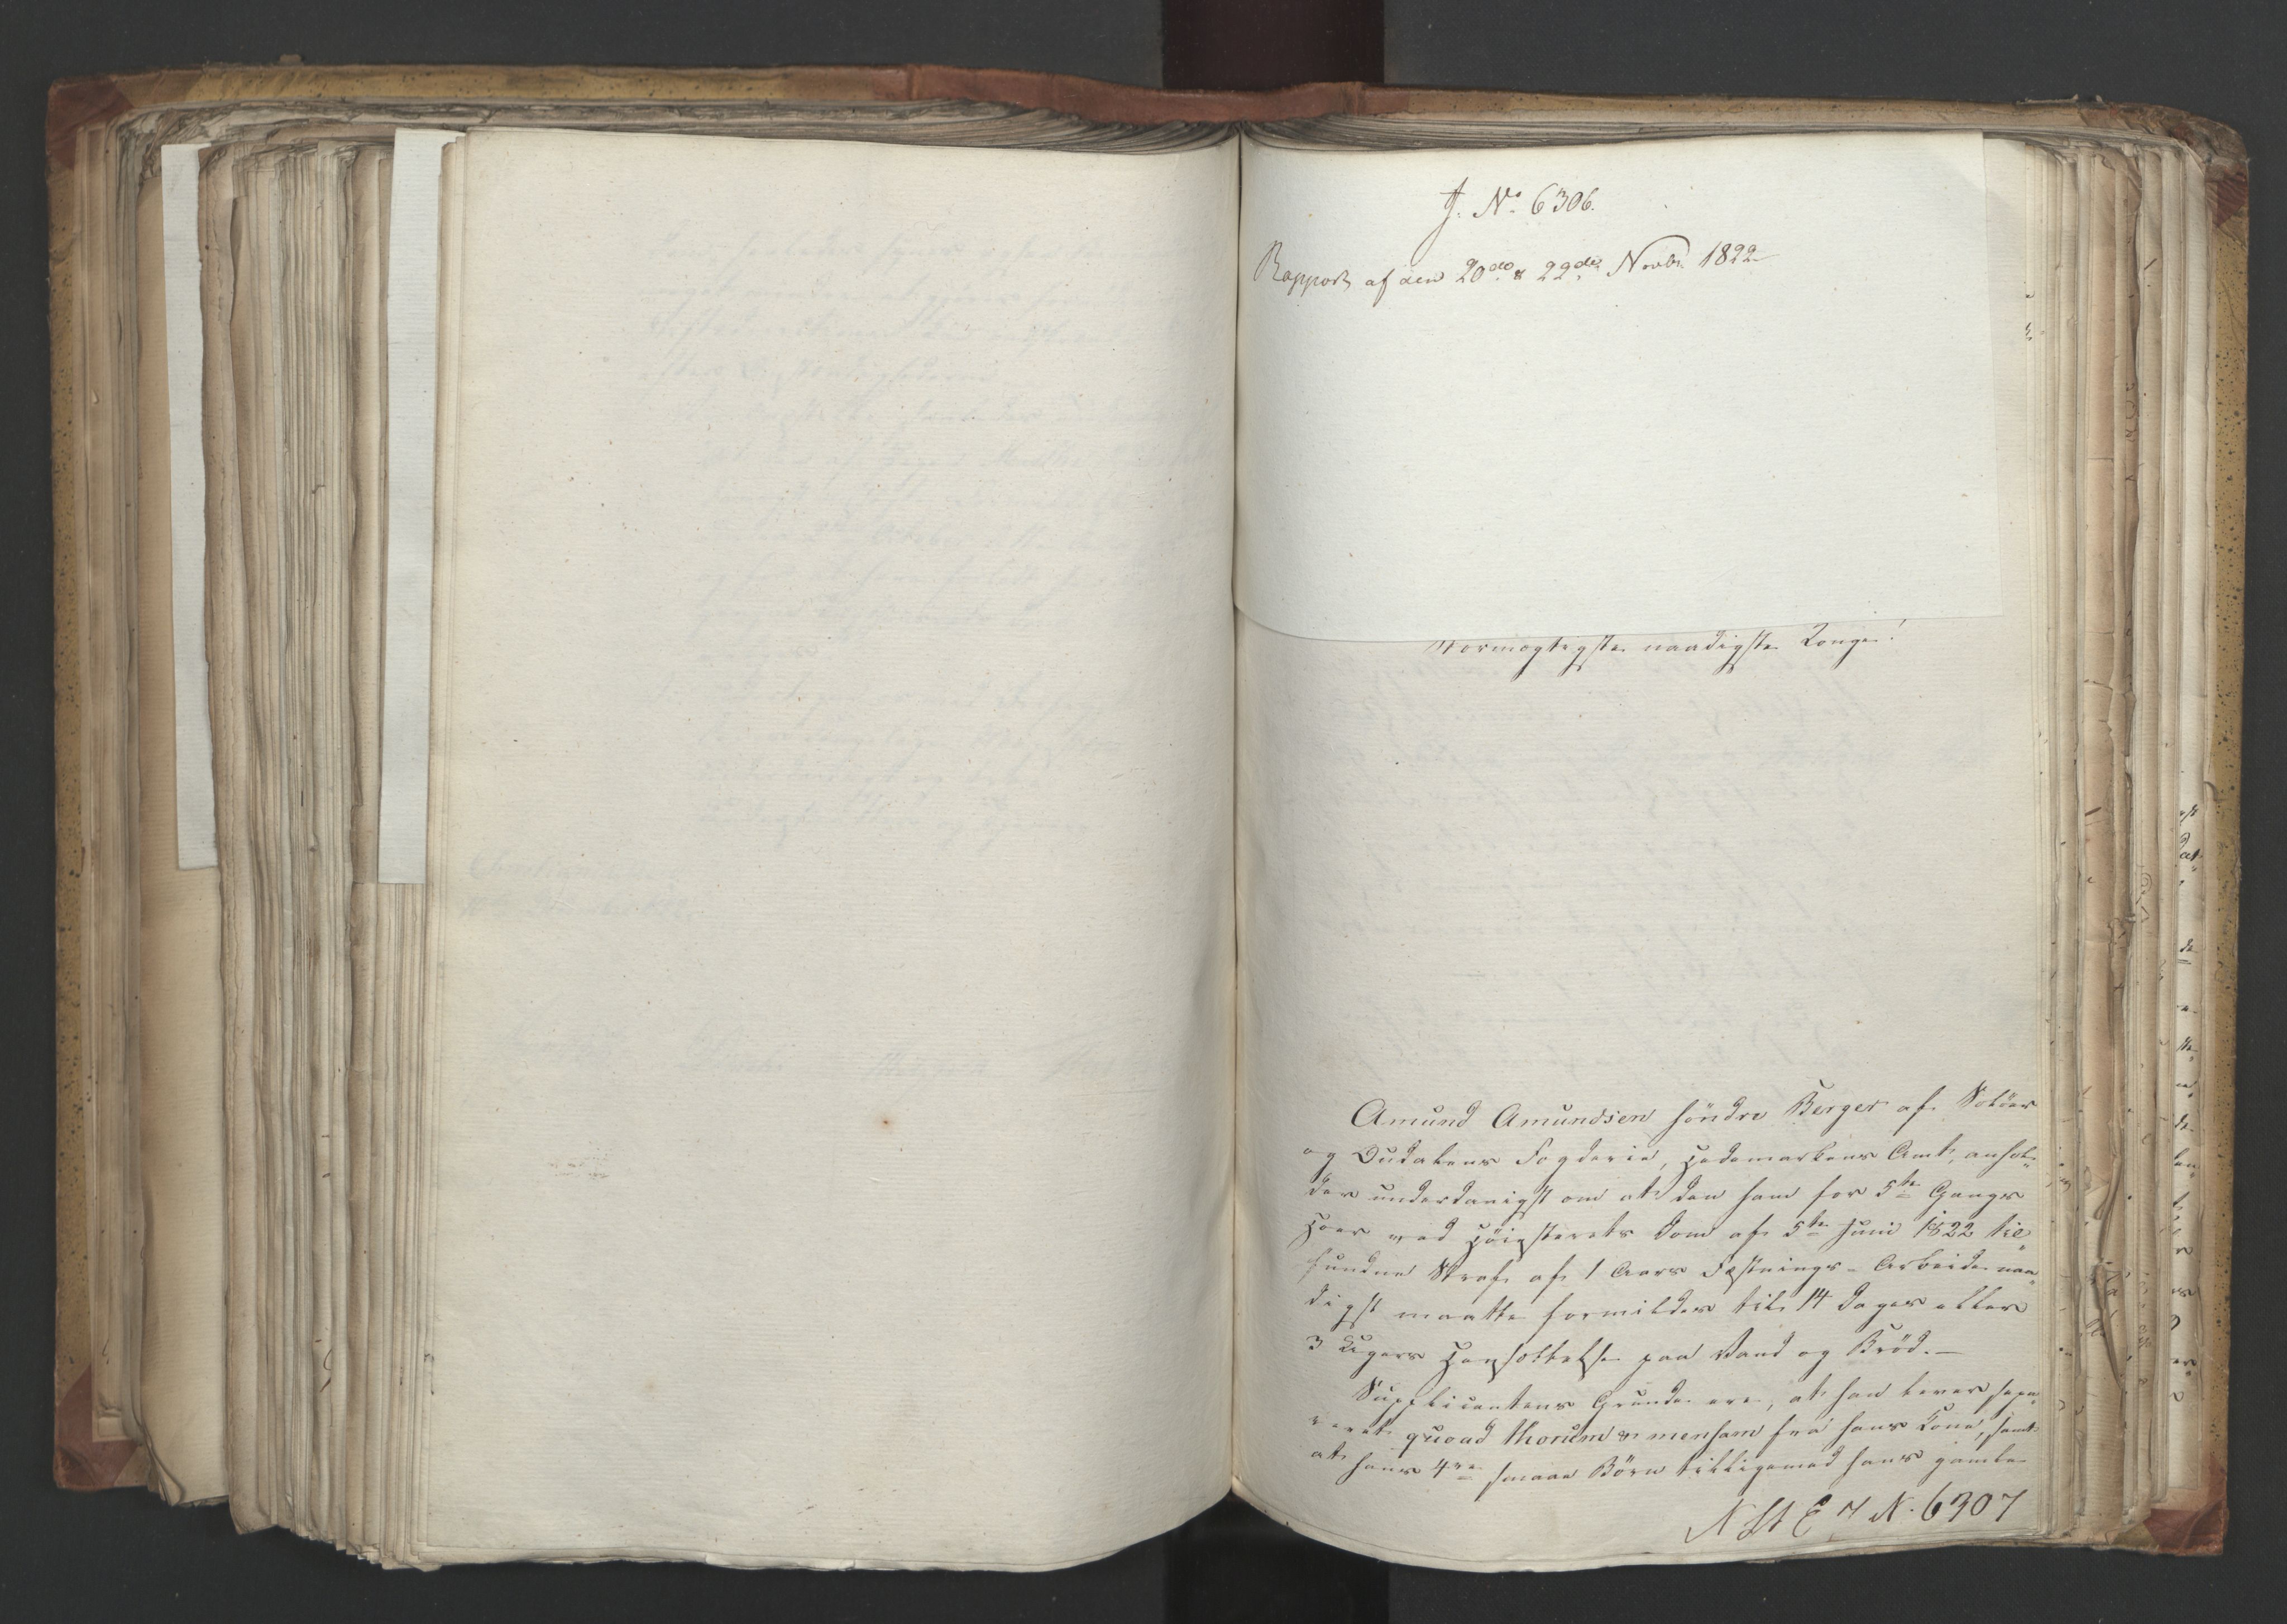 J. No. 6306.
Rapport af den 20de & 22de Novbr 1822
Stormægtigste naadigste Konge!
Amund Amundsen söndre Berger af Solöer
og Oudalens Fogderie, Hedemarkens Amt, anhol-
der underdanigst om at den ham for 5te Gangs
Hoer ved Höiesterets Dom af 5te Juni 1822 til-
fundne Straf af 1 Aars Fæstnings-Arbeide naa-
digst maatte formildes til 14 Dages eller
3 Ugers Hensættelse paa Vand og Bröd.-
Supplicantens Grunde ere, at han lever sepa-
reret quoad thorum & mensam fra hans Kone, samt
at hans 4re smaae Börn tilligemed hans gamle
N St E J N. 6307